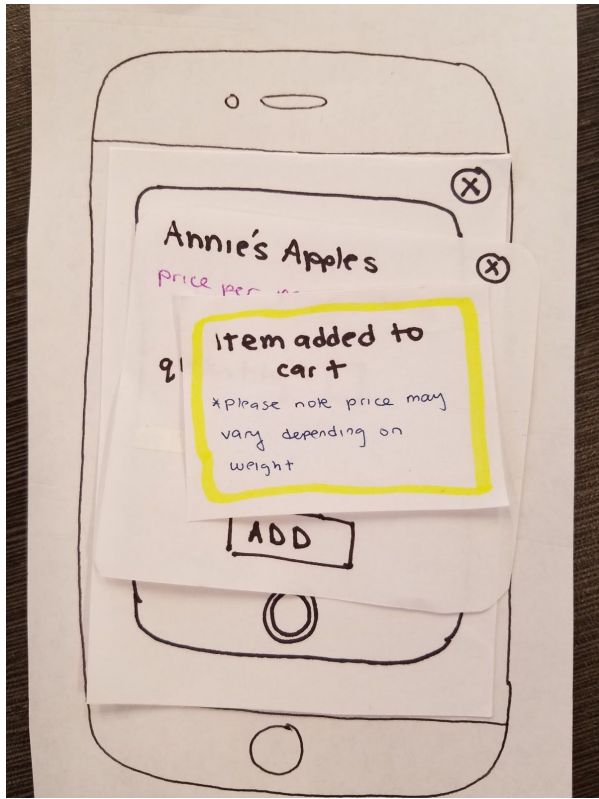 X
Annie's Apples
X
price per
Item added to
cart
*please note price may
vary depending on
weight
ADD